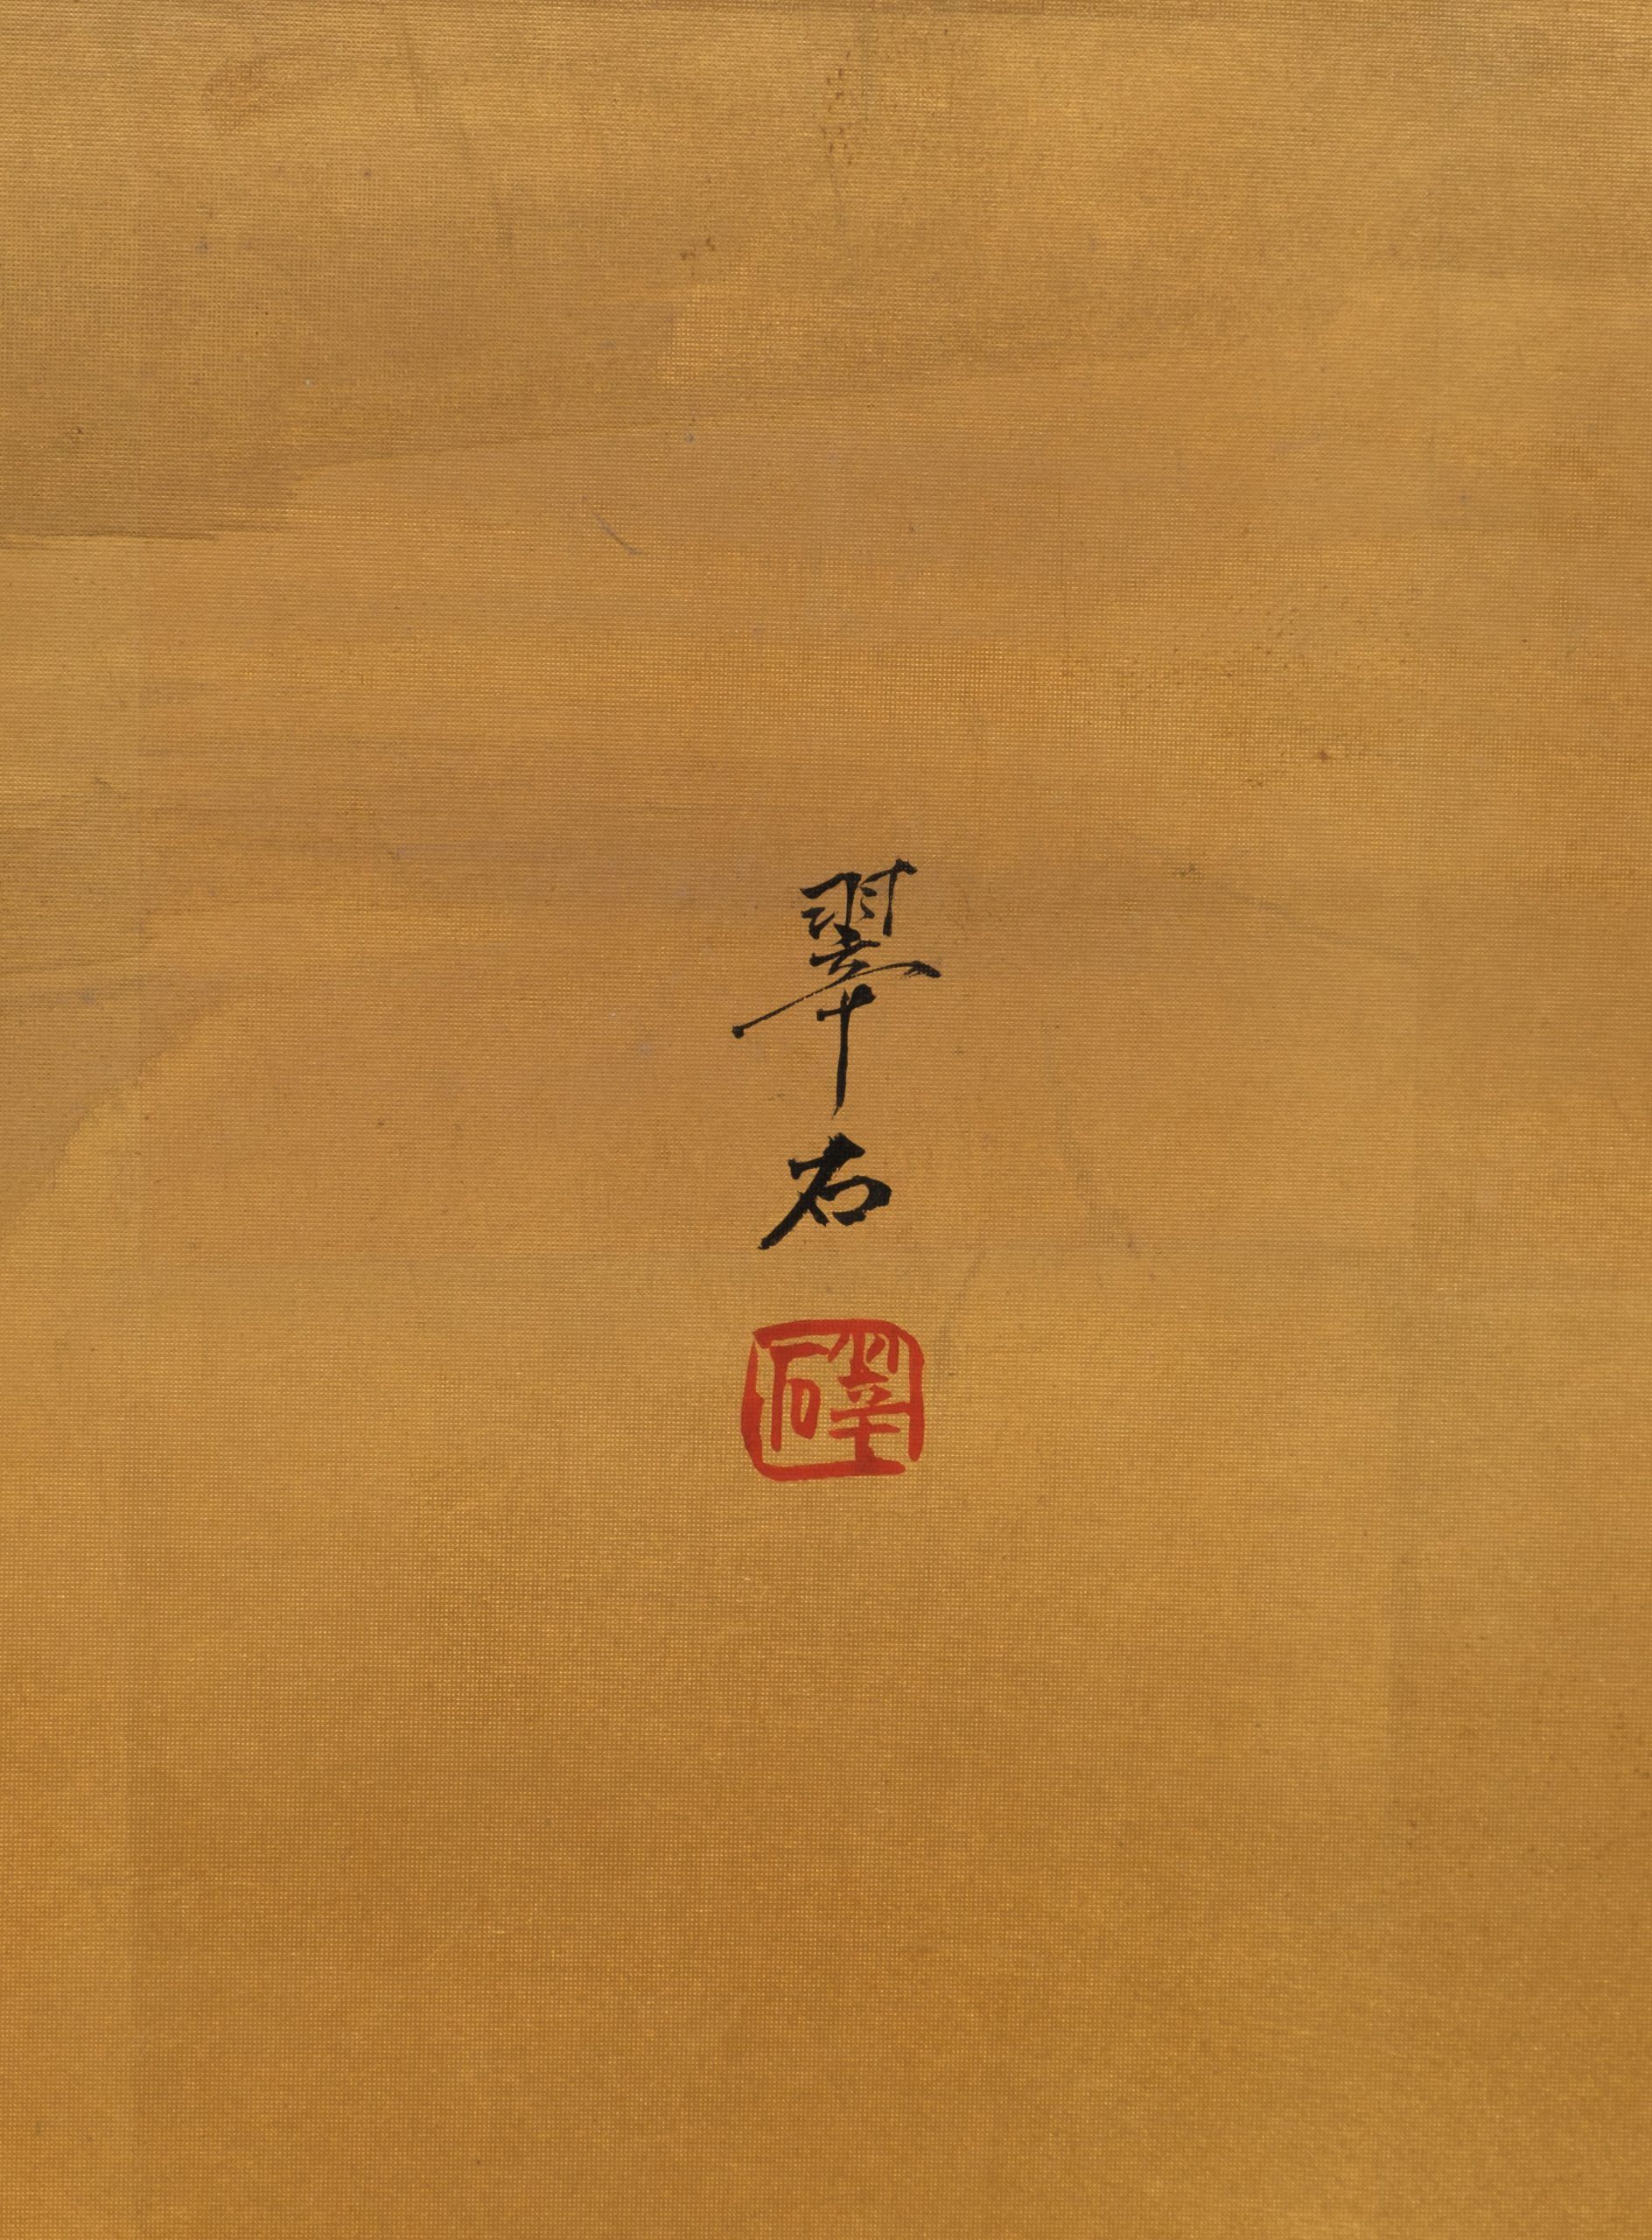 翠石
翠石